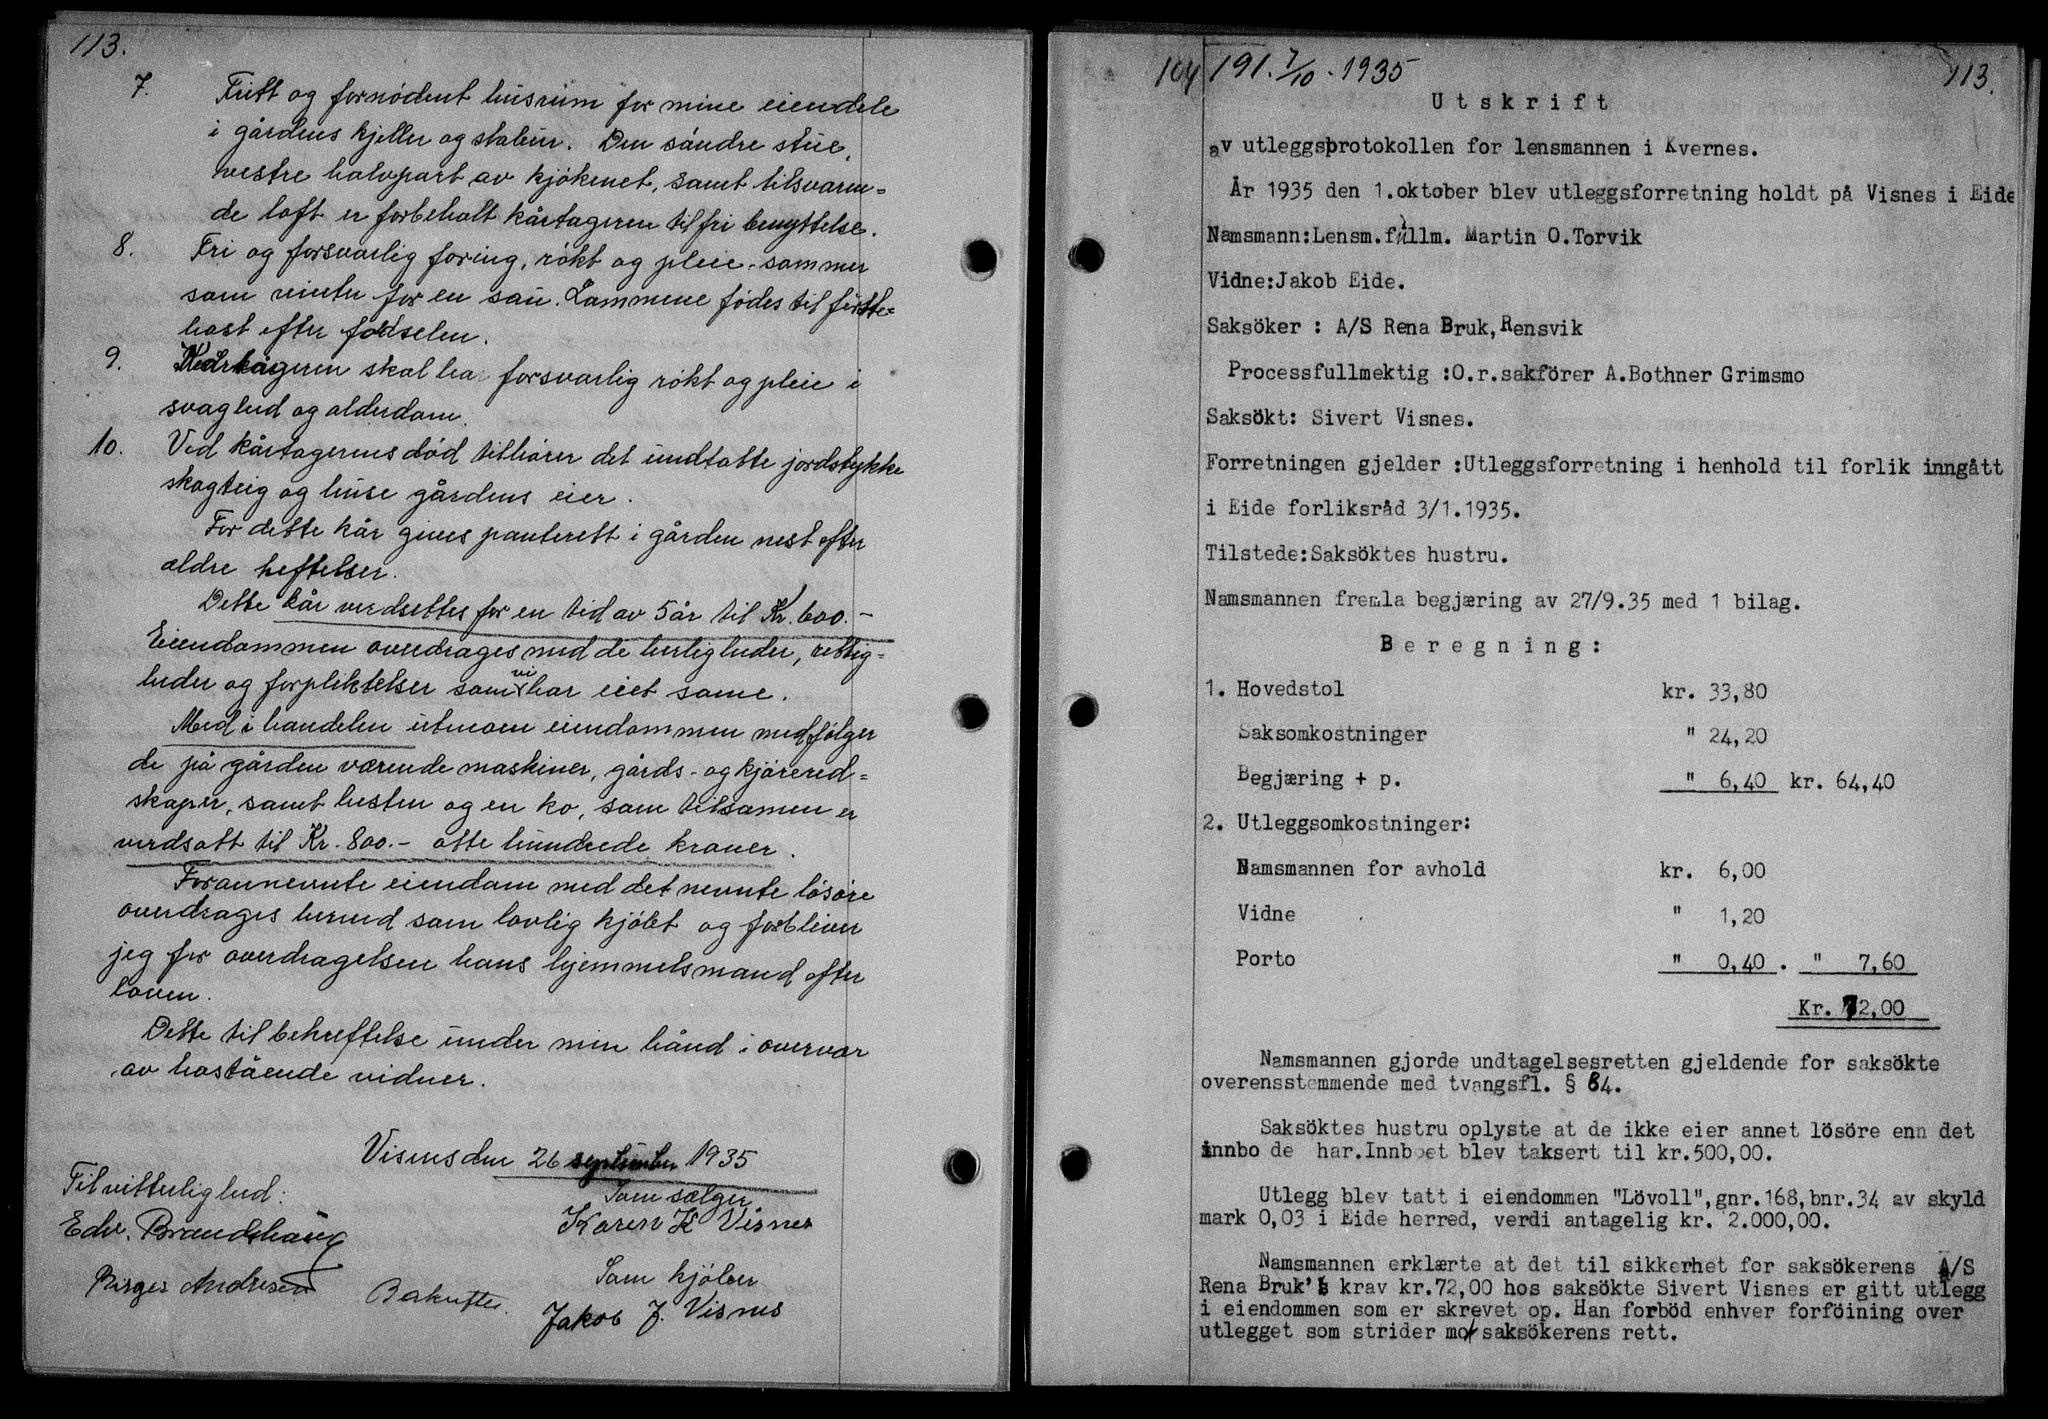 113.
7. Fritt og fornødent husrum for mine eiendele
i gårdens kjeller og stabur. Den søndre stue,
vestre halvpart av kjøkenet, samt tilsvaren=
de loft er forbeholt kårtageren til fri benyttelse.
8. Fri og forsvarlig foring, røkt og pleie - sommer
som vinter for en sau. Lammene fødes til første=
høst efter fødselen.
9. Kårtageren skal ha forsvarlig røkt og pleie i
svaghed og alderdom.
10. Ved kårtagerens død tilhører det undtatte jordstykke
skogteig og huse gårdens eier.
For dette kår gives panterett i gården nest efter
eldre heftelser.
Dette kår verdsettes for en tid av 5 år til Kr. 600.-
Eiendommen overdrages med de herligheder, rettig=
heder og forpliktelser som vi har eiet same.
Med i handelen utenom eiendommen medfølger
de på gården værende maskiner, gårds- og kjørered=
skaper, samt hesten og en ko, som tilsamen er
verdsatt til Kr. 800.- otte hundrede kroner.
Forannevnte eiendom med det nevnte løsøre
overdrages herved som lovlig kjøbt og forbliver
jeg for overdragelsen hans hjemmelsmand efter
loven.
Dette til bekreftelse under min hånd i overvær
av hostående vidner.
Visnes den 26 september 1935
Til vitterlighed:
Som sælger
Edv. Brandshaug
Karen K Visnes
Som kjøber
Birger Andresen
Bekreftes.
Jakob J. Visnes
104 191. 7/10 - 1935 113.
Utskrift
av utleggsprotokollen for lensmannen i Kvernes.
År 1935 den 1.oktober blev utleggsforretning holdt på Visnes i Eide
Namsmann:Lensm.fullm. Martin O.Torvik
Vidne:Jakob Eide.
Saksöker : A/S Rena Bruk, Rensvik
Processfullmektig :O.r.sakförer A.Bothner Grimsmo
Saksökt: Sivert Visnes.
Forretningen gjelder :Utleggsforretning i henhold til forlik inngått
i Eide forliksråd 3/1.1935.
Tilstede:Saksöktes hustru.
Namsmannen fremla begjæring av 27/9.35 med 1 bilag.
Beregning:
1. Hovedstol kr. 33,80
Saksomkostninger " 24,20
Begjæring + p. " 6,40 kr. 64,40
2. Utleggsomkostninger:
Namsmannen for avhold kr. 6,00
Vidne " 1,20
Porto " 0,40 . " 7,60
Kr. 72,00
Namsmannen gjorde undtagelsesretten gjeldende for saksökte
overensstemmende med tvangsfl. § 84.
Saksöktes hustru oplyste at de ikke eier annet lösöre enn det
innbo de har.Innboet blev taksert til kr.500,00.
Utlegg blev tatt i eiendommen "Lövoll",gnr.168,bnr.34 av skyld
mark 0,03 i Eide herred, verdi antagelig kr. 2.000,00.
Namsmannen erklærte at det til sikkerhet for saksökerens A/S
Rena Bruk's krav kr.72,00 hos saksökte Sivert Visnes er gitt utlegg
i eiendommen som er skrevet op. Han forböd enhver forföining over
utlegget som strider mot saksökerens rett.